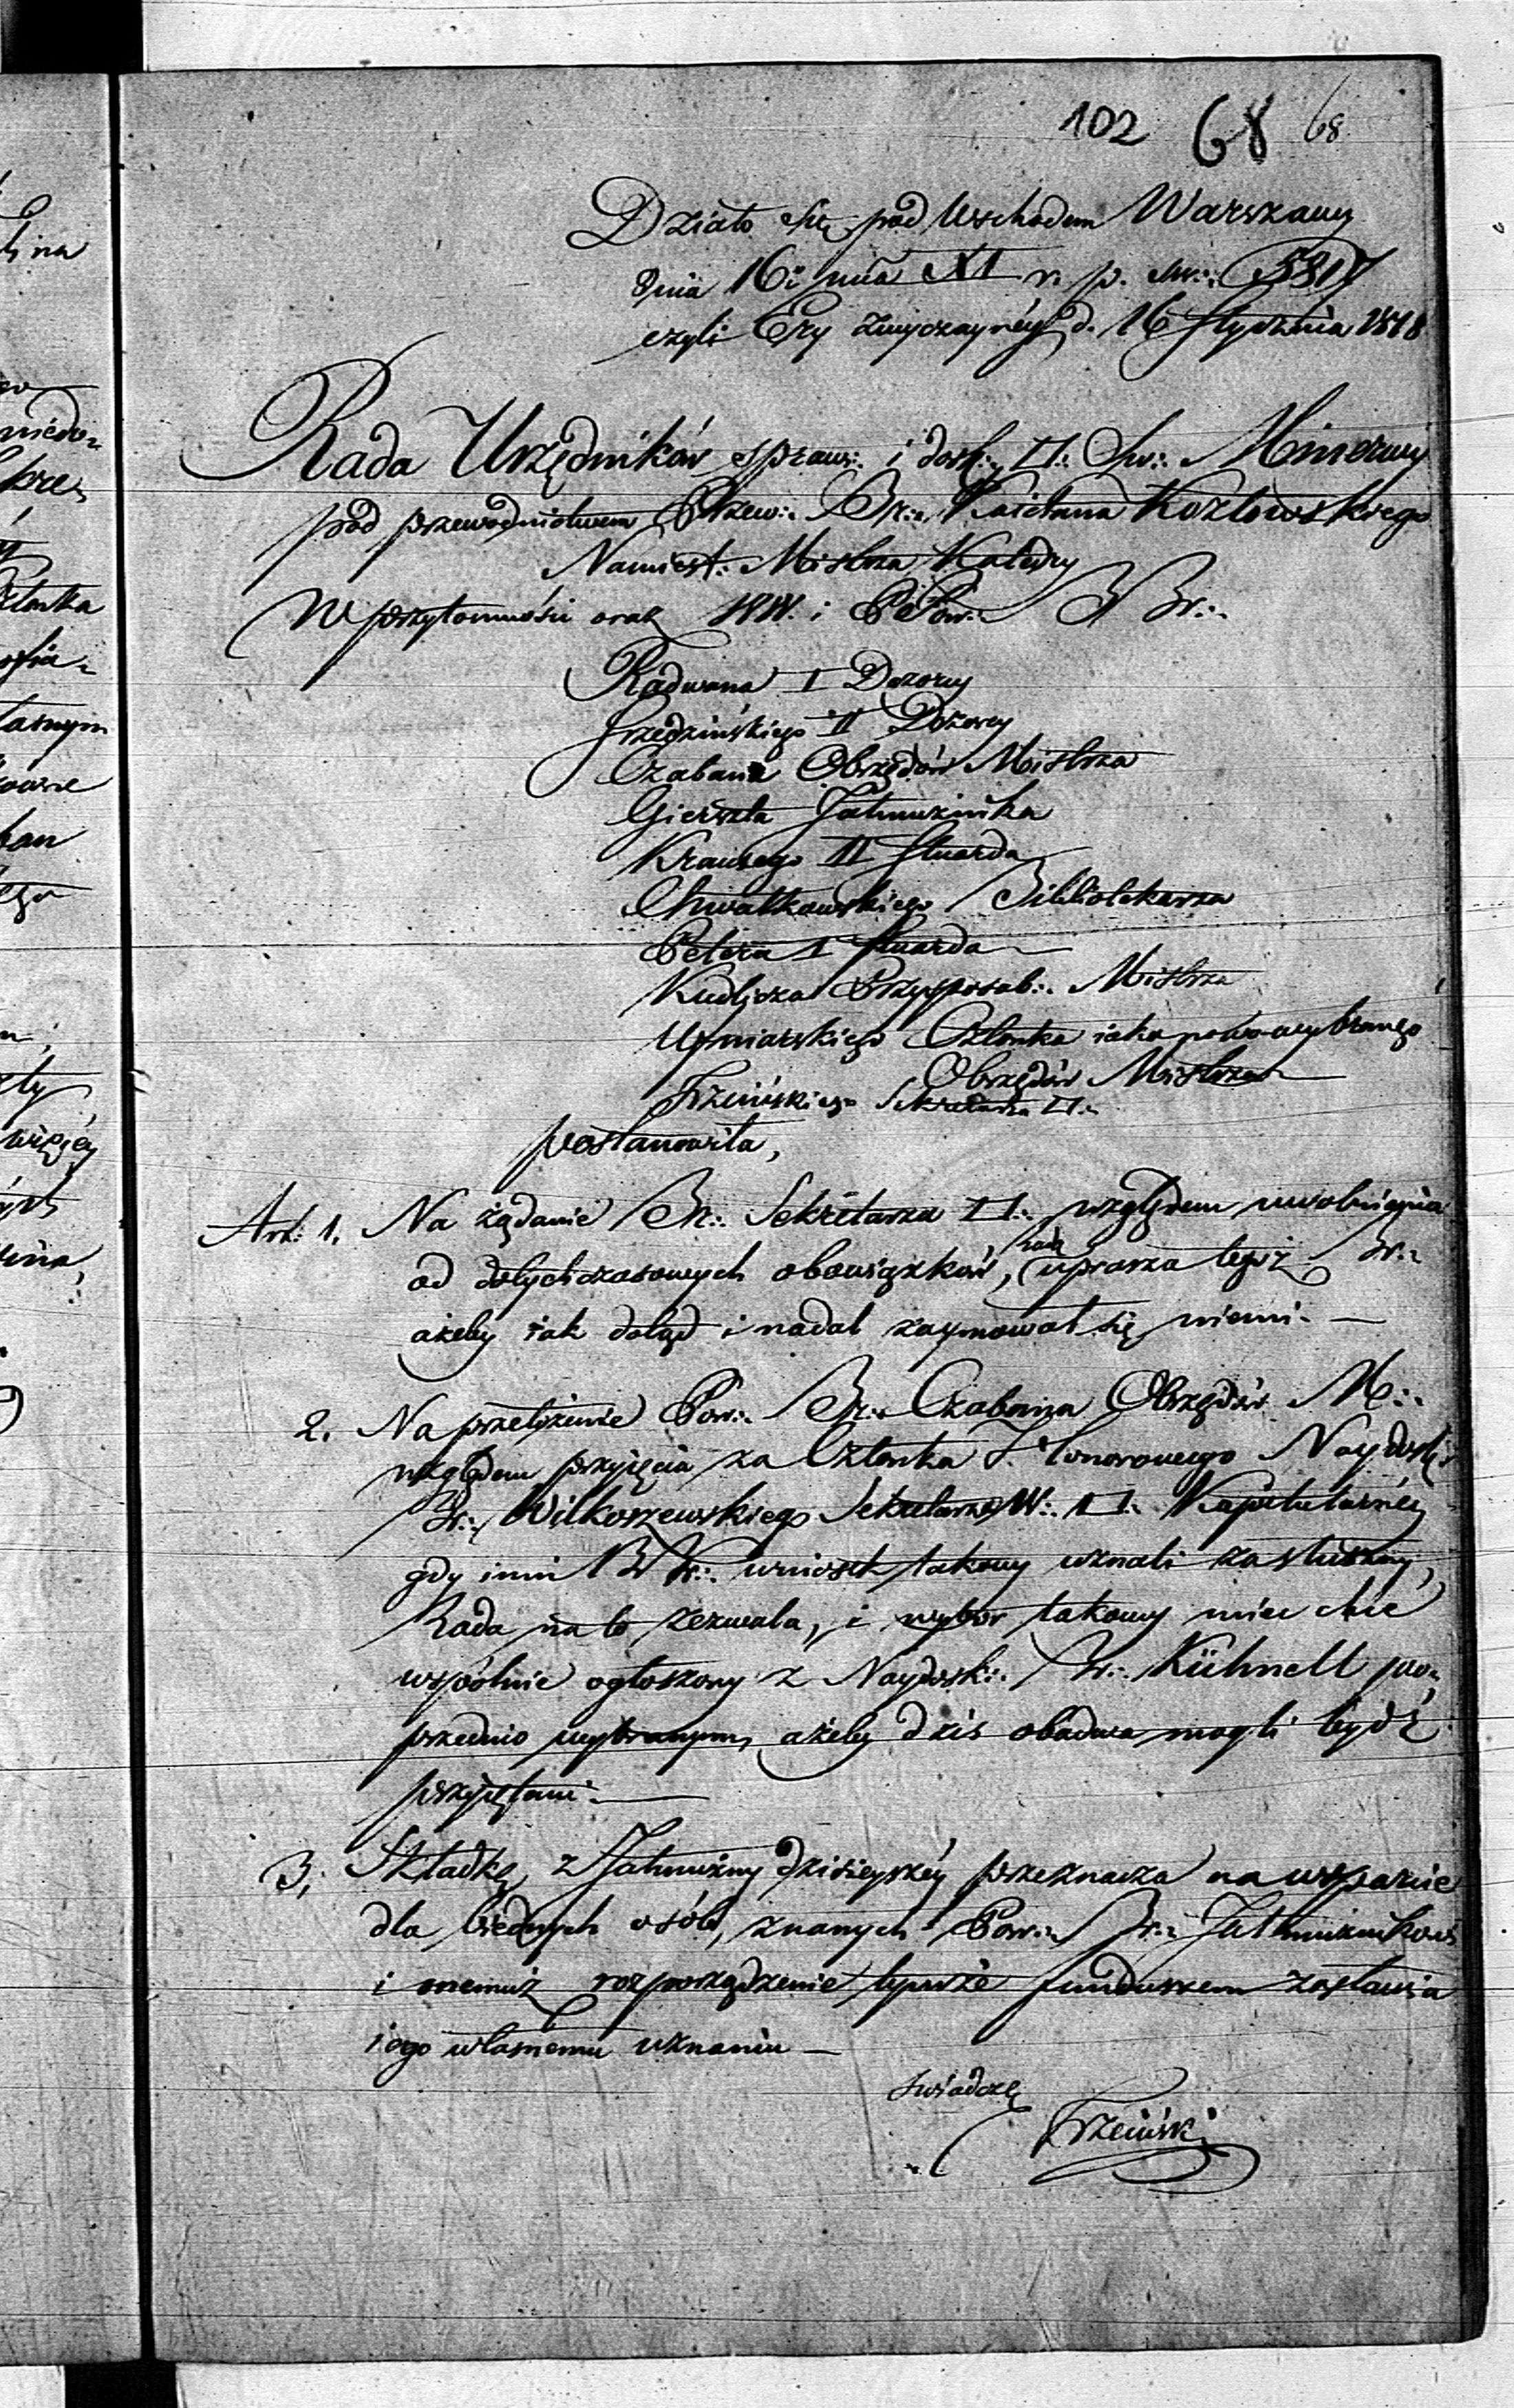 102 68 68
Działo się pod Wschodem Warszawy
dnia 16: mca XI r. p. św:. 5817
czyli Ery Zwyczaynéy d. 16 Stycznia 1818
Rada Urzędników spraw:. i dosk:. □:. Św:. Minerwy
pod przewodnictwem Przew:. Br:. Kaietana Kozłowskiego
Namiest:. Mistrza Katedry
W przytomności oraz WW. i PPow:. BBr:.
Radwana I Dozorcy
II Dozorcy
Czabana Obrzędów Mistrza
Gierszta Jałmużnika
Krausego II Stuarda
Chwałkowskiego Bibliotekarza
Petera I Stuarda
Kudlicza Przysposob:. Mistrza
Uymiarskiego Członka iako nowo-wybranego
Obrzędów Mistrza
Trzcińskiego Sekretarza □:.
postanowiła,
Art: 1. Na żądanie Br:. Sekretarza □:. względem uwolnienia
od dotychczasowych obowiązków, rada uprasza tegoż Br:.
ażeby iak dotąd i nadal zaymował się niemi. —
2. Na przełożenie Pow:. Br:. Czabana Obrzędów M:.
względem przyięcia za Członka Honorowego Naydosk:.
Br:. Wilkoszewskiego Sekretarza W:. □:. Kapitularnéy
gdy inni BBr:. wniosek takowy uznali za słuszny,
Rada na to zezwala, i wybor takowy mieć chce
wspólnie ogłoszony z Naydosk:. Br:. Kühnell po-
przednio wybranym, ażeby dziś obadwa mogli bydź
przyiętami. —
3. Składkę z Jałmużny dzisieyszéy przeznacza na wsparcie
dla biednych osób, znanych Pow:. Br:. Jałmużnikowi
i onemuż rozporządzenie tymże funduszem zostawia
iego własnemu uznaniu —
świadczę
Trzciński